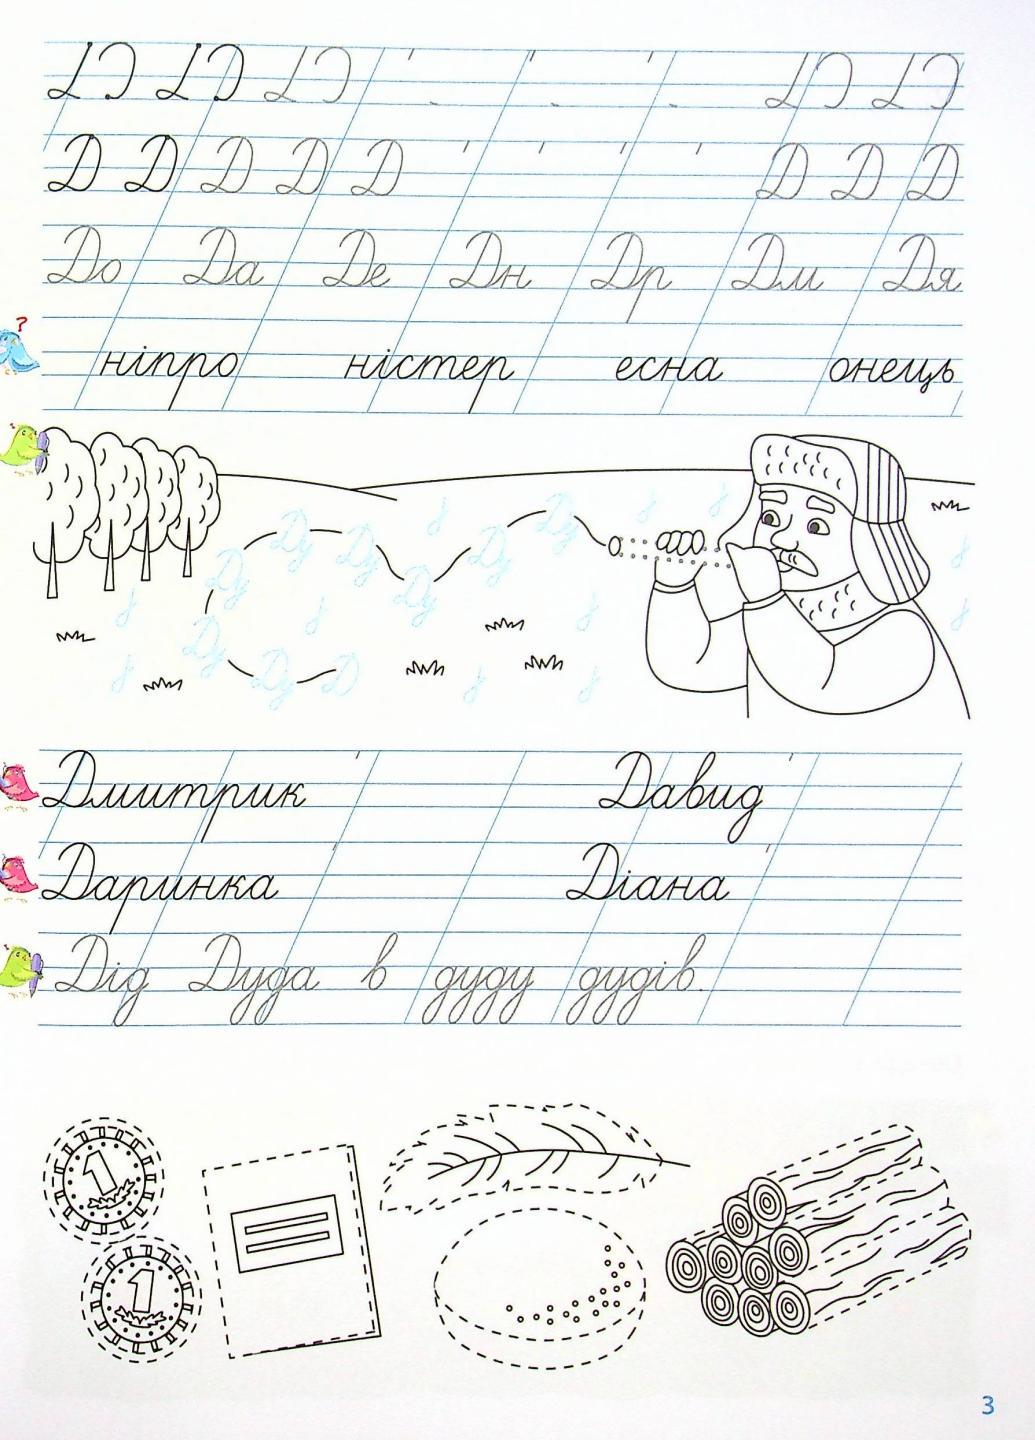 Д Д Д Д Д Д Д Д
До Да Де Дн Др Дм Дя
?
ніпро ністер есна онець
Ду Ду Ду Ду Ду Ду
Ду
Ду
Ду Д
Дмитрик Давид
Даринка Діана
Дід Дуда в дуду дудів.
1
1
3